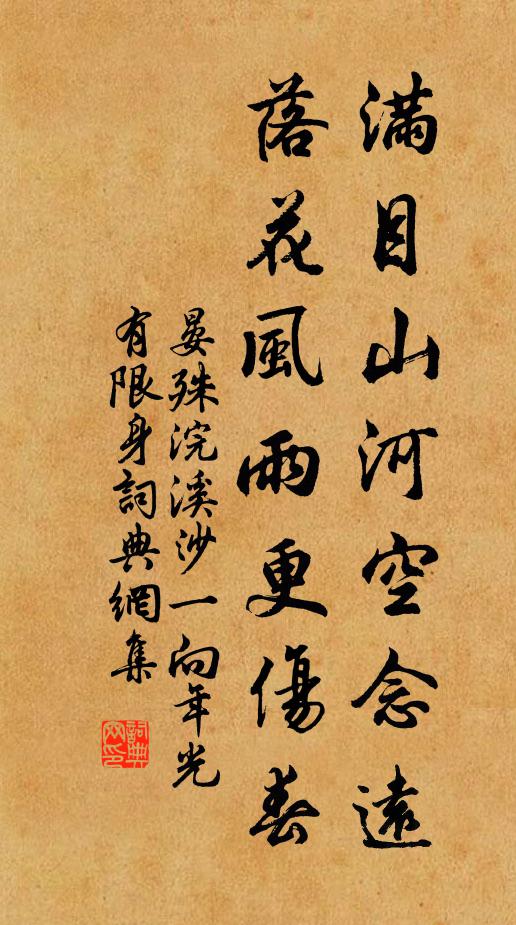 滿目山河空念遠
落花風雨更傷春
晏殊浣溪沙一向年光
有限身詞典網集
詞典
网印